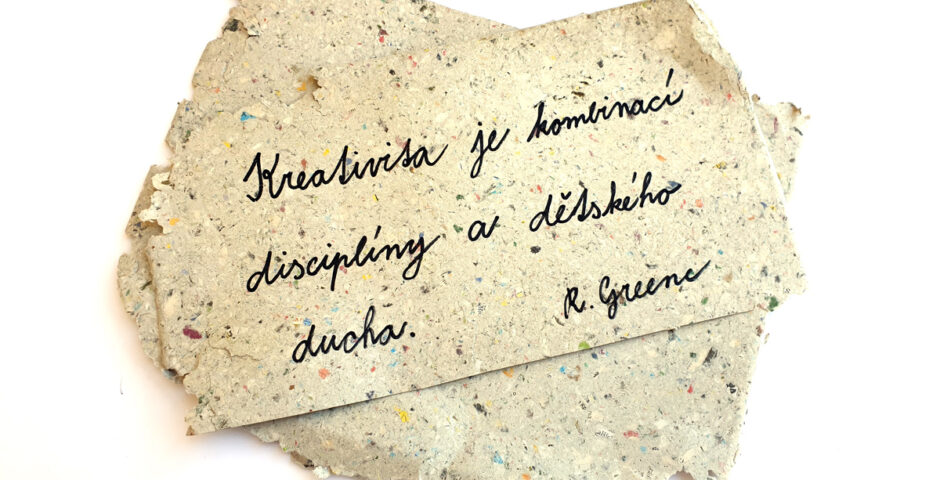 Kreativita je kombinací
disciplíny a dětského
ducha.
R. Greene